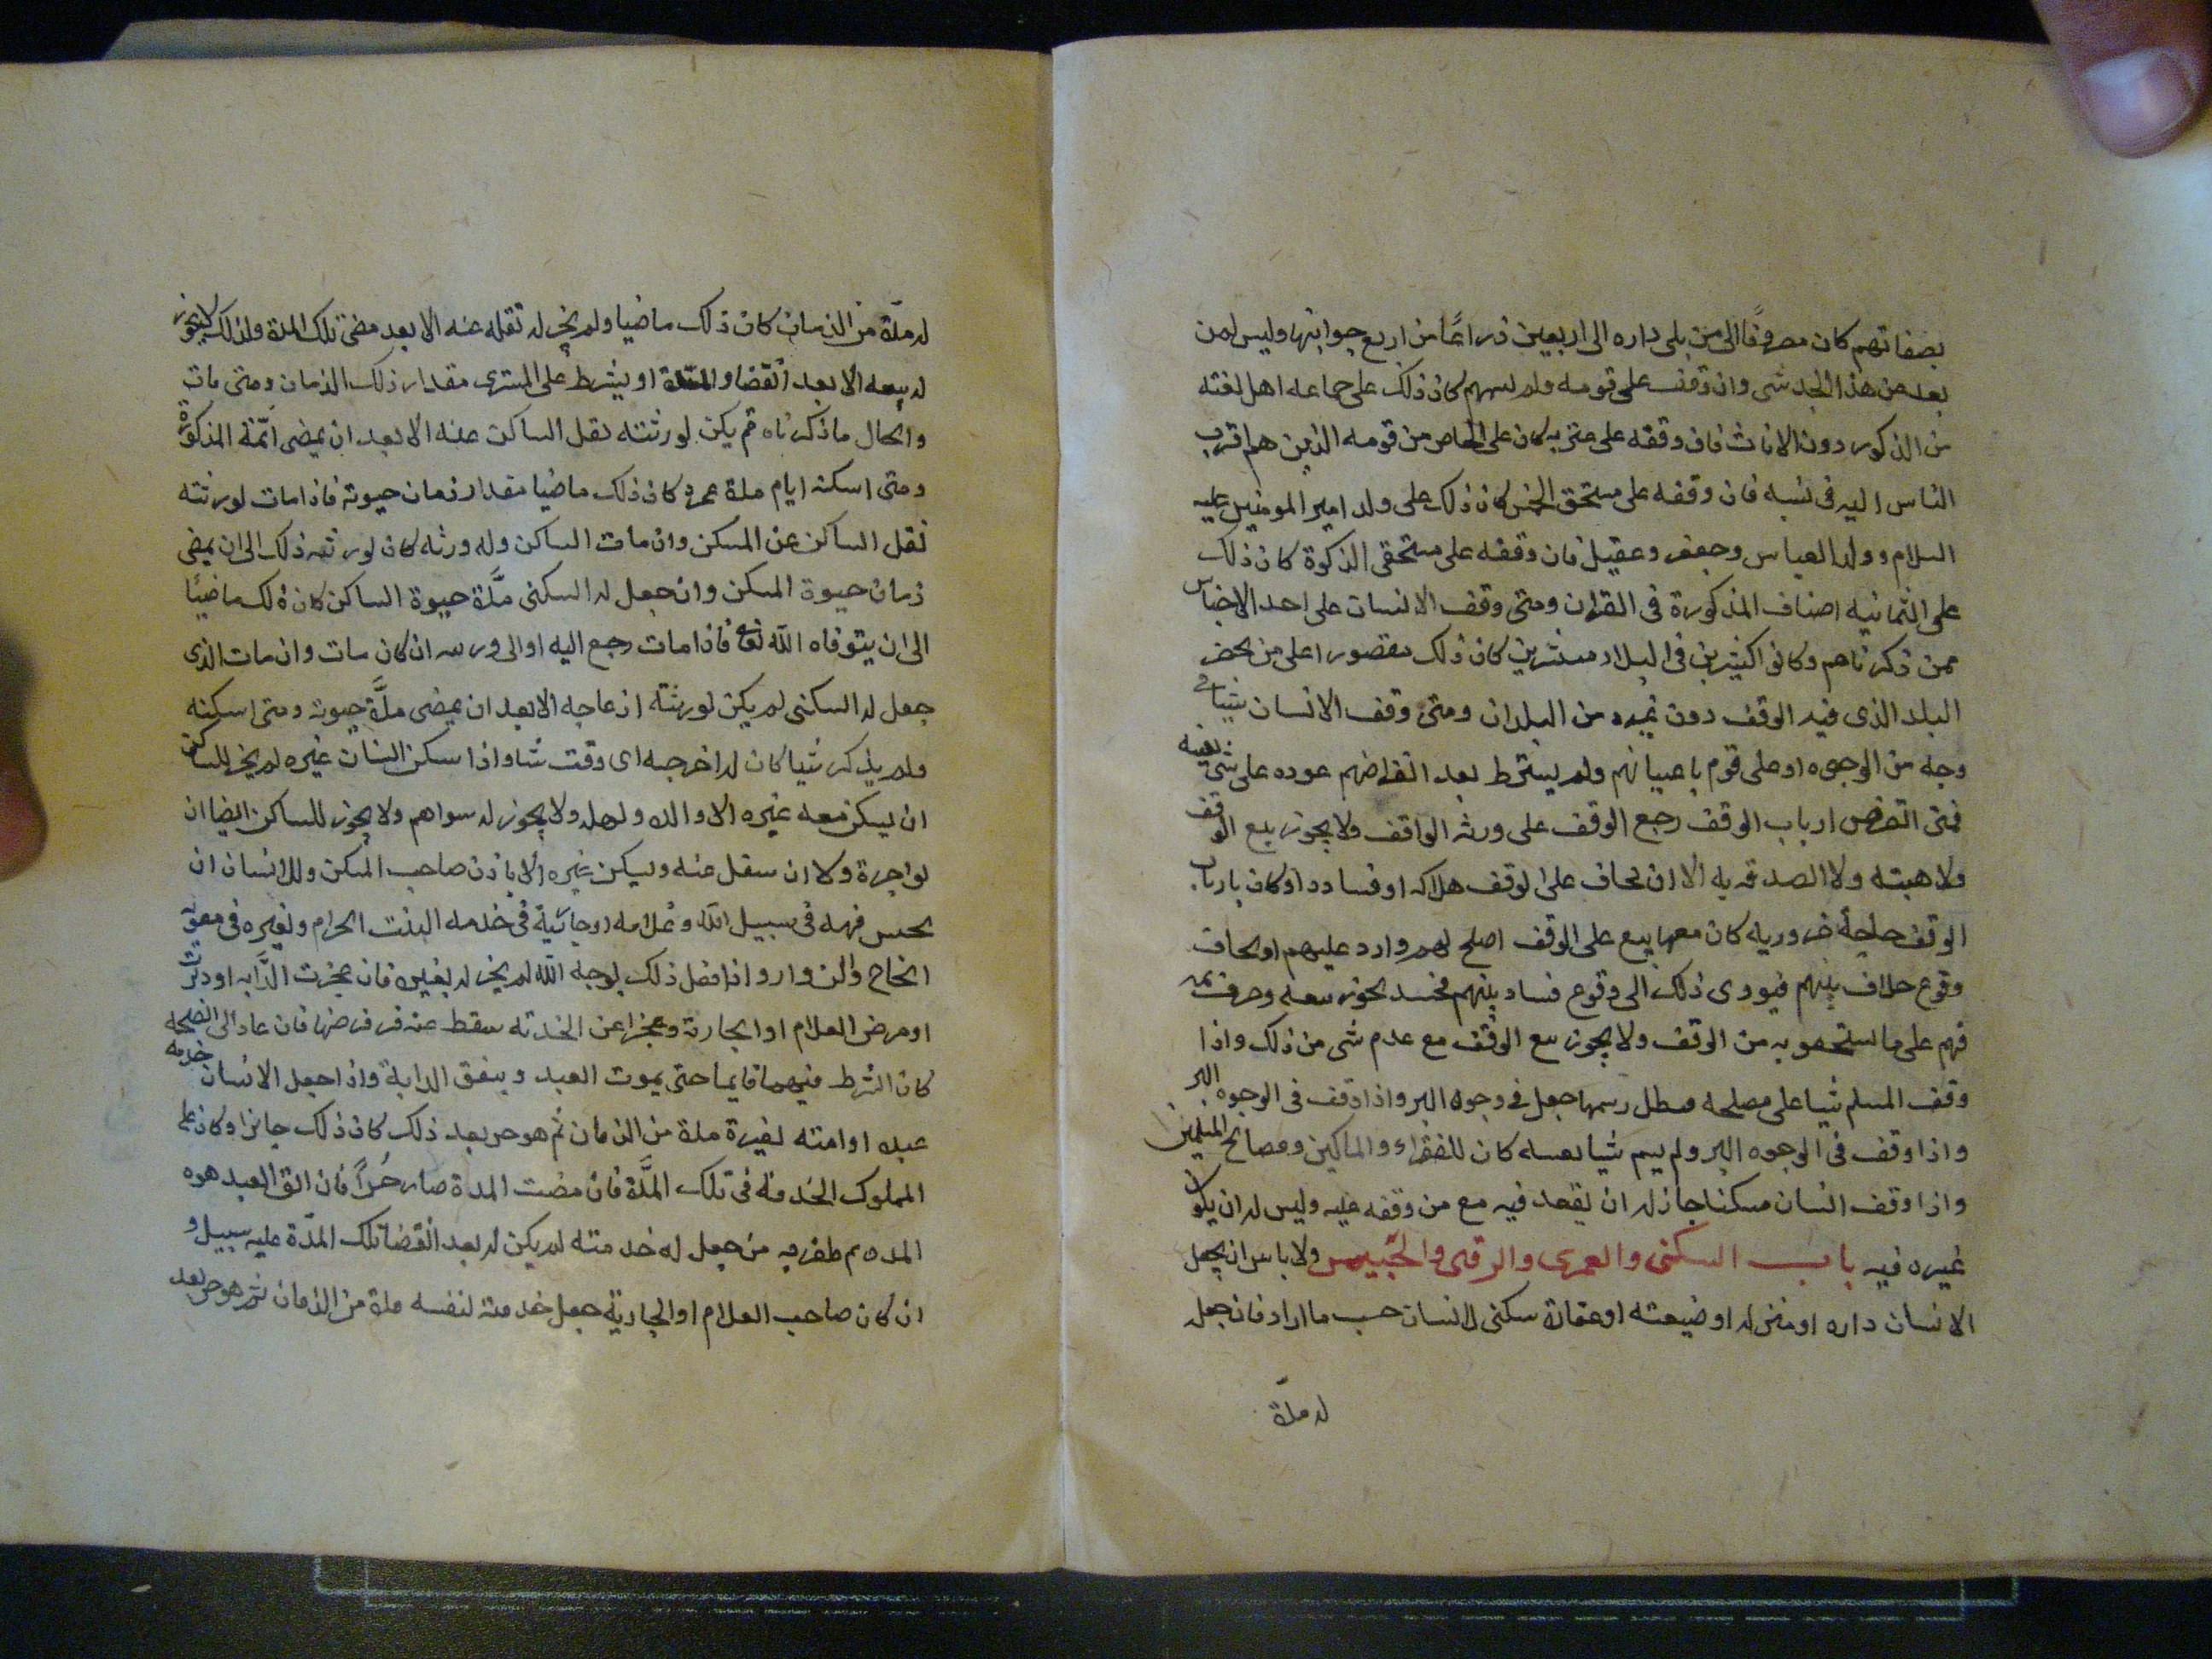 بصفاتهم كان مصروفًا الى من يلى داره الى اربعين ذراعًا من اربع جوانبها وليس لمن
بعد عن هذا الحد شى وان وقف على قومه ولم يسمهم كان ذلك على جماعه اهل لغته
من الذكور دون الاناث فان وقفه على عترته كان على الخاص من قومه الذين هم اقرب
الناس اليه فى نسبه فان وقفه على مستحق الخمس كان ذلك على ولد امير المومنين عليه
السلام وولد العباس وجعفر وعقيل فان وقفه على مستحقى الزكوة كان ذلك
على الثمانيه اصناف المذكورة فى القران ومتى وقف الانسان على احد الاجناس
ممن ذكرناهم وكانوا كثيرين فى البلاد منتشرين كان ذلك مقصورا على من يحضر
البلد الذى فيه الوقف دون غيره من البلدان ومتى وقف الانسان شيئا فى
وجه من الوجوه او على قوم باعيانهم ولم يشترط بعد انقراضهم عوده على شى بعينه
فمتى انقرض ارباب الوقف رجع الوقف على ورثه الواقف ولا يجوز بيع الوقف
ولا هبته ولا الصدقه به الا ان يخاف على الوقف هلاكه او فساده او كان بارباب
الوقف حاجة ضروريه كان معها بيع على الوقف اصلح لهم وارد عليهم او يخاف
وقوع خلاف بينهم فيودى ذلك الى وقوع فساد بينهم فحينئذ يجوز بيعه وصرف ثمنه
فيهم على ما يستحقونه من الوقف ولا يجوز بيع الوقف مع عدم شى من ذلك واذا
وقف المسلم شيا على مصلحه فبطل رسمها جعل فى وجوه البر واذا وقف فى الوجوه البر
واذا وقف فى الوجوه البر ولم يسم شيا بعينه كان للفقراء والمساكين ومصالح المسلمين
واذا وقف انسان مسكنا جاز له ان يقعد فيه مع من وقفه عليه وليس له ان يكون
غيره فيه باب السكنى والعمرى والرقبى والحبيس ولا باس ان يجعل
الانسان داره او منزله او ضيعته او عقاره سكنى لانسان حسب ما اراد فان جعل
له مدّة
له مدّة من الزمان كان ذلك ماضيا ولم يجز له نقله عنه الا بعد مضى تلك المدة وكذلك لا يجوز
له بيعه الا بعد انقضاو المدة او يشرط على المشترى مقدار ذلك الزمان ومتى مات
والحال ما ذكرناه فلم يكن لورثته نقل الساكن عنه الا بعد ان يمضى المدة المذكورة
ومتى اسكنه ايام مدة عمره كان ذلك ماضيا مقدار زمان حيوته فاذا مات لورثته
نقل الساكن عن المسكن وان مات الساكن وله ورثه كان لورثته ذلك الى ان يمضى
زمان حيوة المسكن وان جعل له السكنى مدَّة حيوة الساكن كان ذلك ماضيًا
الى ان يتوفاه الله تعا فاذا مات رجع اليه او الى ورثته ان كان مات وان مات الذى
جعل له السكنى لم يكن لورثته ازعاجه الا بعد ان يمضى مدَّة حيوته ومتى اسكنه
ولم يذكر شيا كان له اخرجه اى وقت شا واذا سكن انسان غيره لم يجز للساكن
ان يسكن معه غيره الا والده واهله ولا يجوز له سواهم ولا يجوز للساكن ايضا ان
يواجره ولا ان ينتقل عنه ويسكن غيره الا باذن صاحب المسكن وللانسان ان
يحبس فرسه فى سبيل الله وغلامه او جاريته فى خدمه البيت الحرام وبعيره فى معونة
الحاج والزوار واذا فعل ذلك لوجه الله لم يجز له تغييره فان عجزت الدَّابه او دبرت
او مرض الغلام او الجارية وعجزا عن الخدمه سقط عنه فرضها فان عاد الى الصحة
كان الشرط فيهما قايما حتى يموت العبد وينفق الدابة واذا جعل الانسان خدمه
عبده او امته لغيره مدة من الزمان ثم هو حر بعد ذلك كان ذلك جايزا وكان على
المملوك الخدمة فى تلك المدَّة فان مضت المدة صار حُراً فان ابق العبد هذه
المده ثم ظفر به من جعل له خدمته لم يكن له بعد انقضا تلك المدّة عليه سبيل و
ان كان صاحب الغلام او الجارية جعل خدمته لنفسه مدة من الزمان ثم هو حر بعد